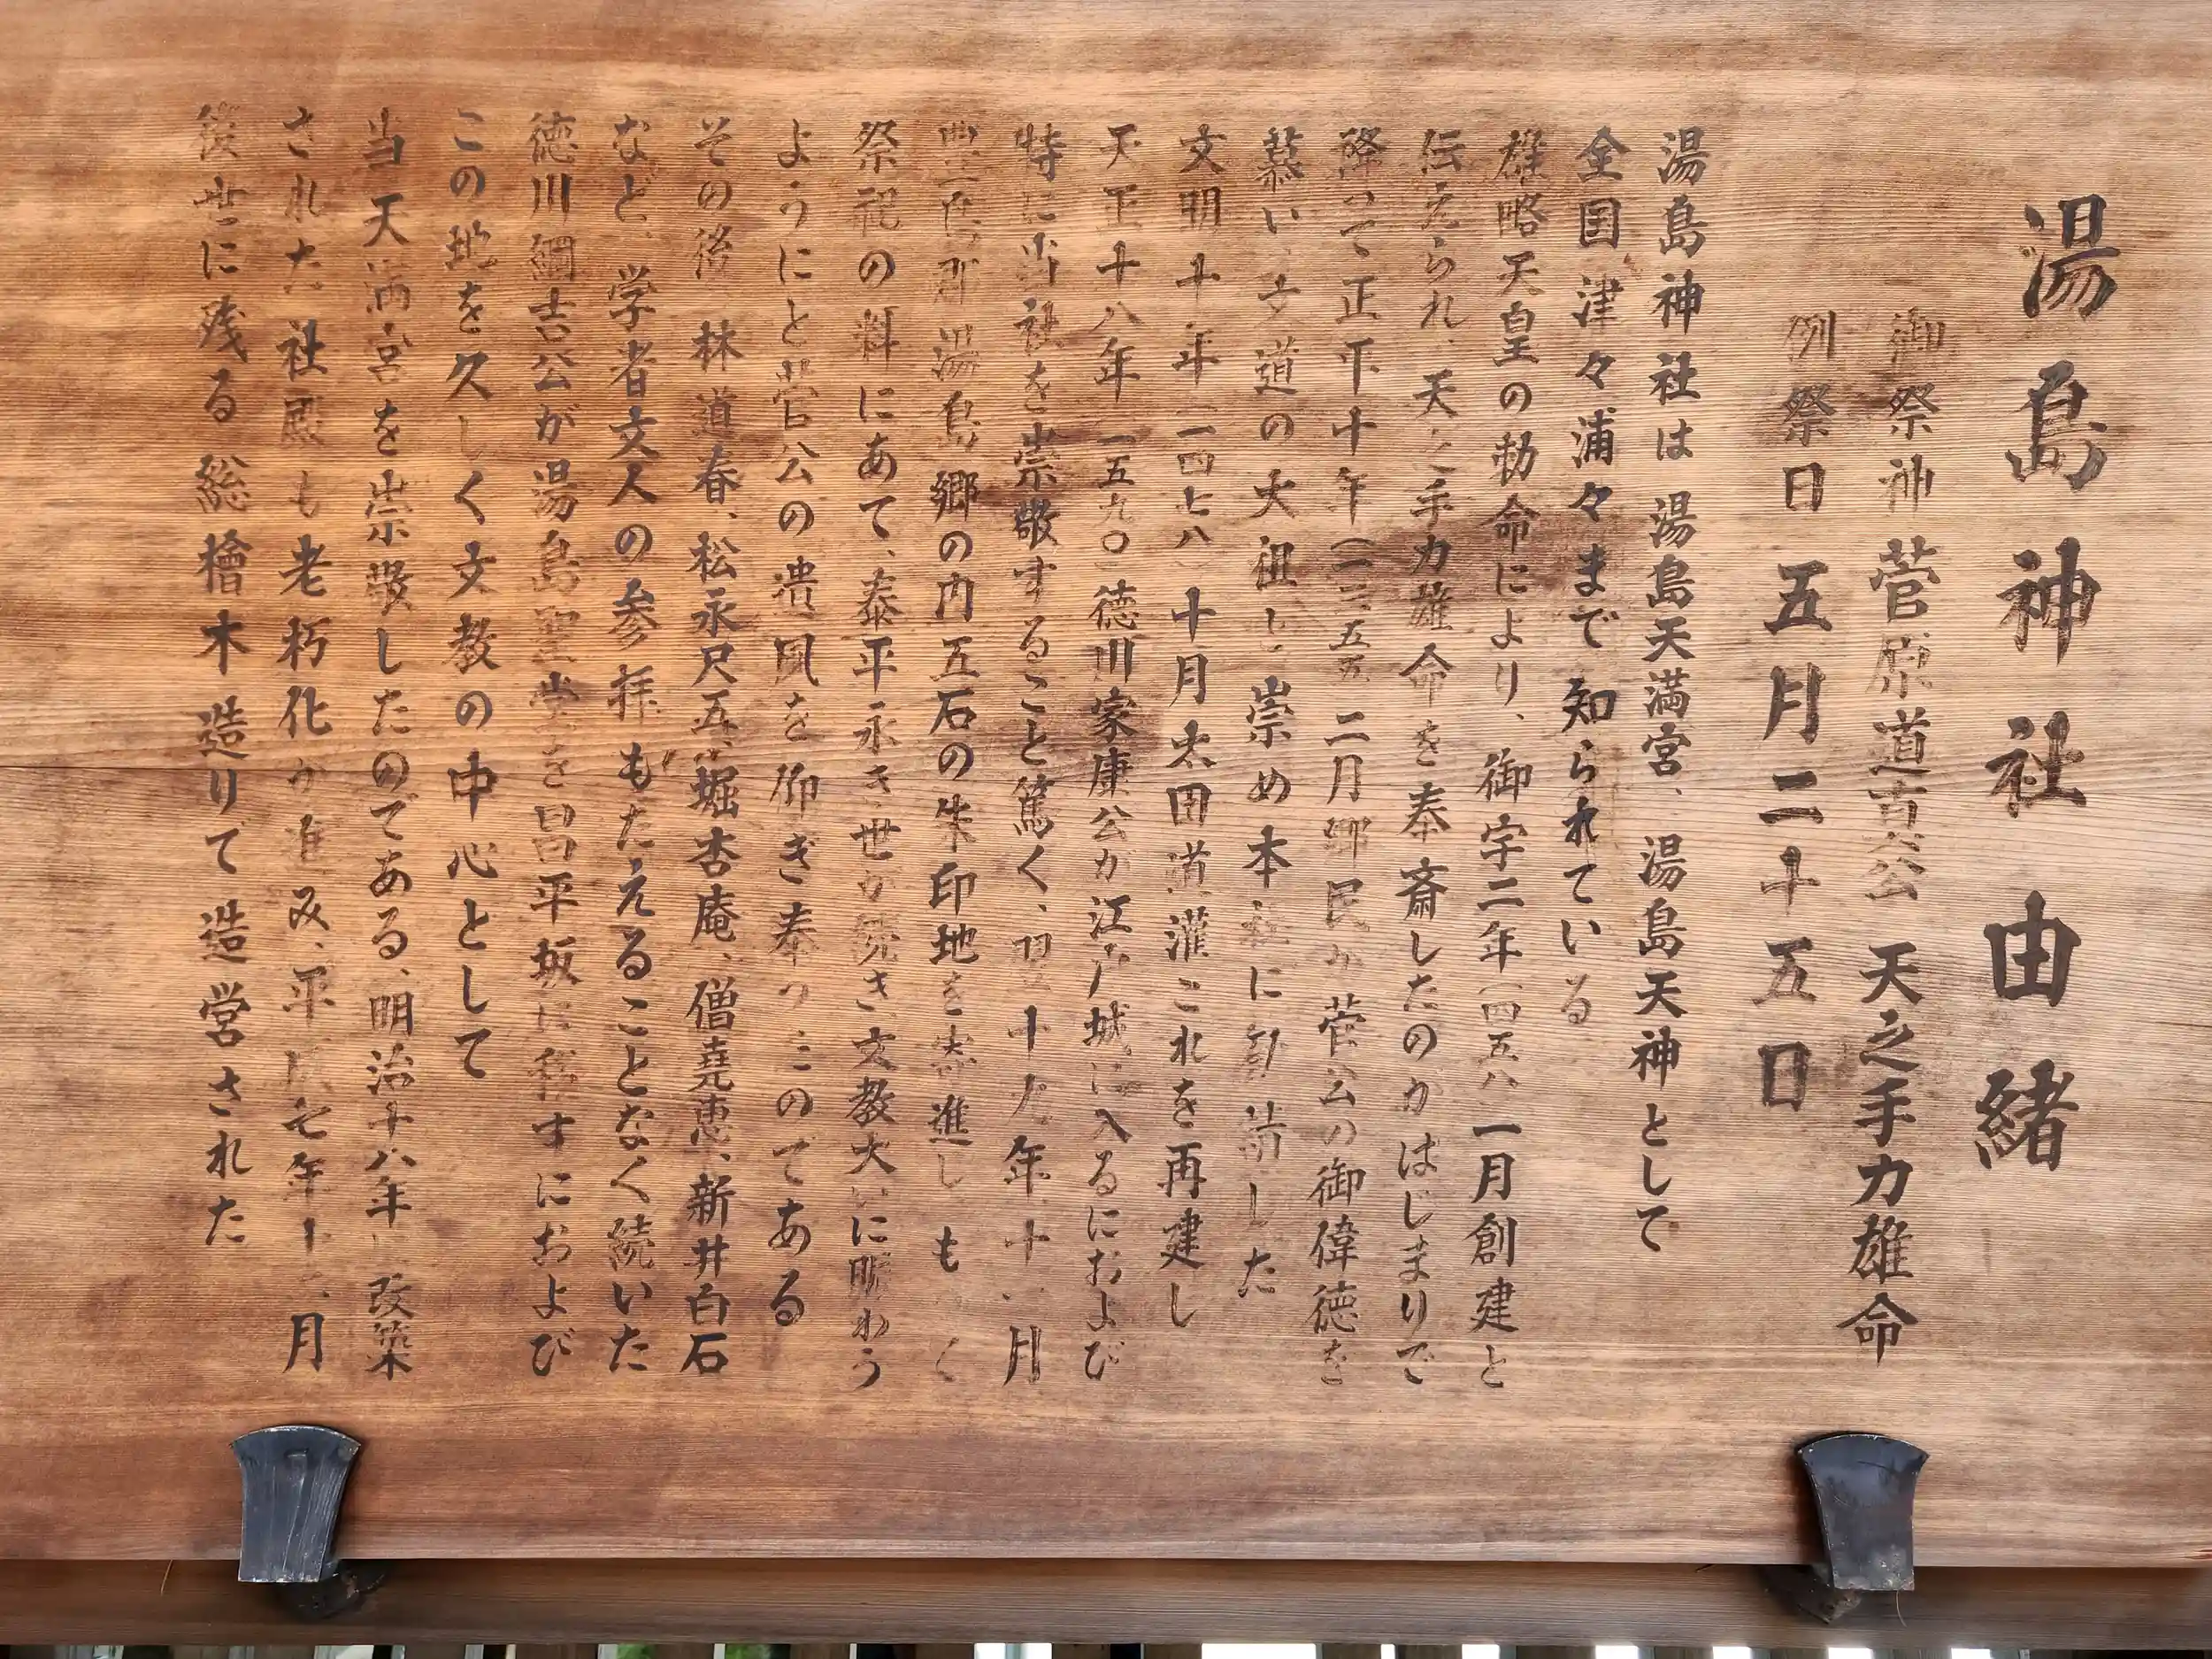 湯島神社由緒
御祭神 菅原道真公 天之手力雄命
例祭日 五月二十五日
湯島神社は 湯島天満宮、湯島天神として
全国津々浦々まで知られている
雄略天皇の勅命により、御宇二年(四五八 一月創建と
伝えられ、天之手力雄命を奉斎したのがはじまりで
降って正平十年(一三五五 二月郷民が菅公の御偉徳を
慕い 文道の大祖と崇め本社に勧請した
文明十年 一四七八 十月太田道灌これを再建し
天正十八年 一五九〇 徳川家康公が江戸城に入るにおよび
特に当社を崇敬すること篤く、翌十九年十一月
豊島郡湯島郷の内五石の朱印地を寄進し もく
祭祀の料にあて、泰平永き世が続き文教大いに賑わう
ようにと菅公の遺風を仰ぎ奉ったのである
その後 林道春、松永尺五、堀杏庵、僧堯恵、新井白石
など、学者文人の参拝もたえることなく続いた
徳川綱吉公が湯島聖堂を昌平坂に移すにおよび
この地を久しく文教の中心として
当天満宮を崇敬したのである、明治十八年に改築
された社殿も老朽化が進み、平成七年十二月
後世に残る総檜木造りで造営された